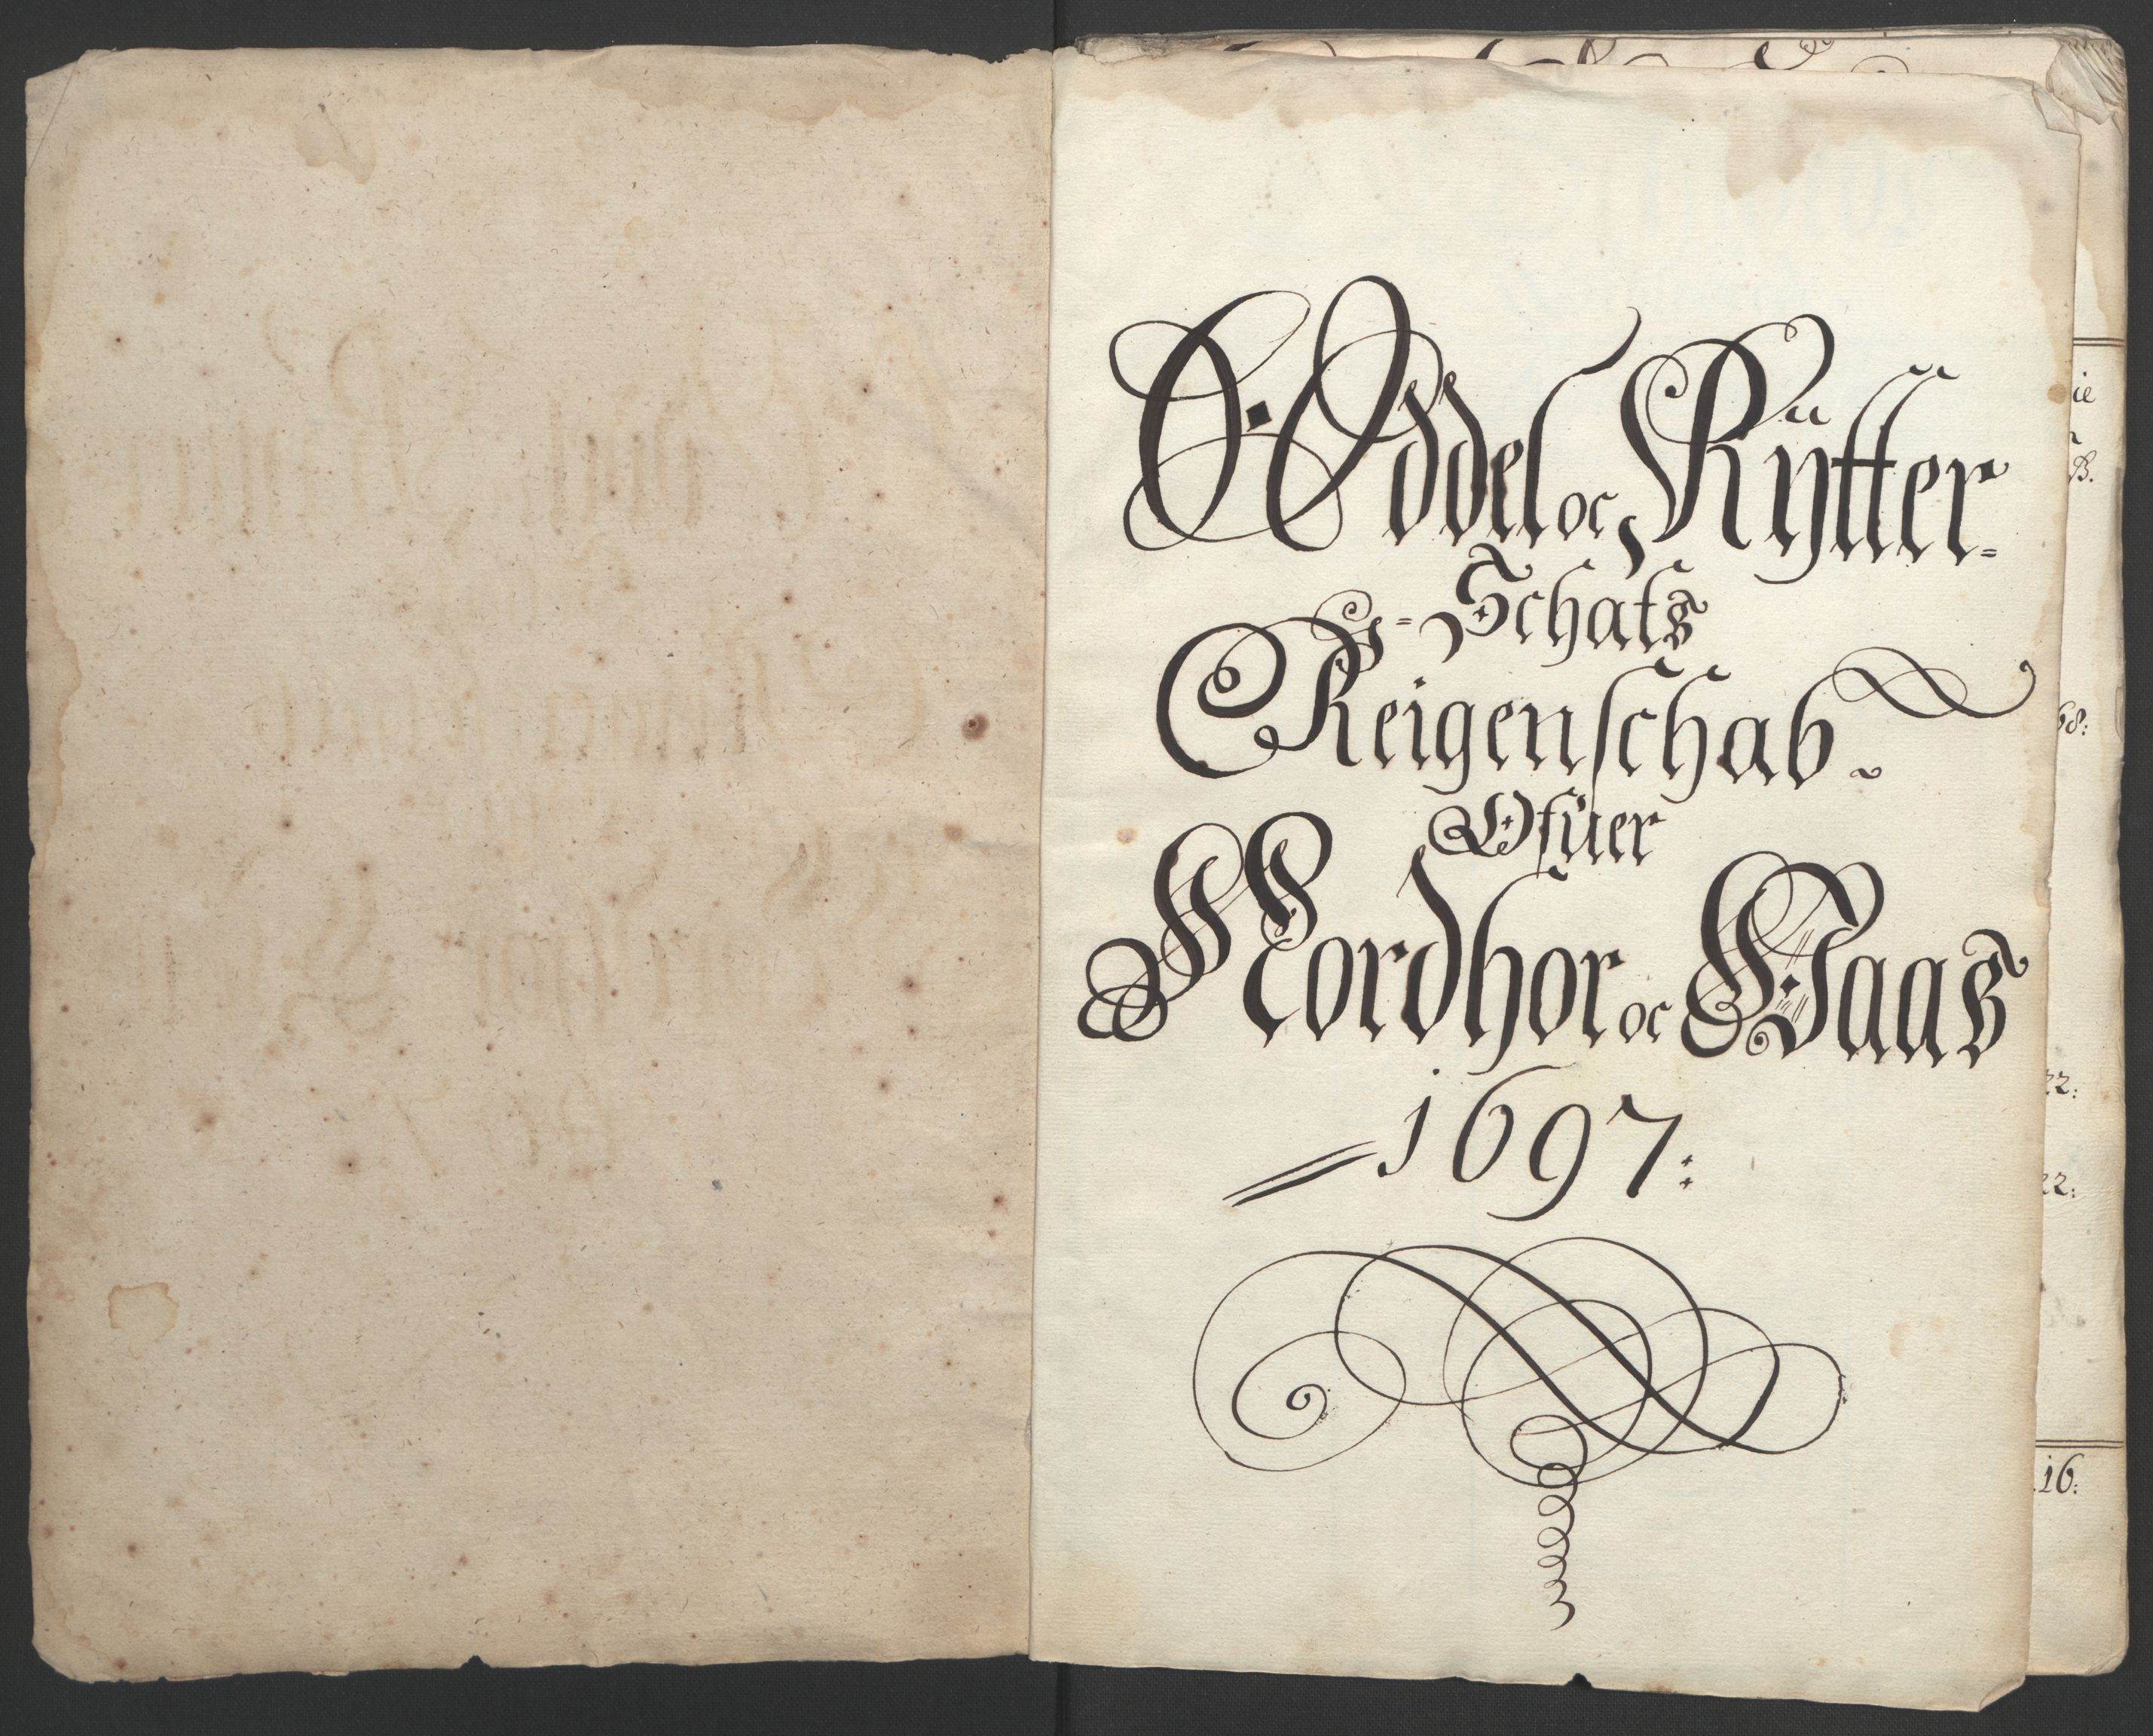 Oddel oc Rÿtter-
-Schatz
Reigenschab
Ofuer
Nordhor oc Waaß
1697:
ie
ß.
68:
22:
22:
16: